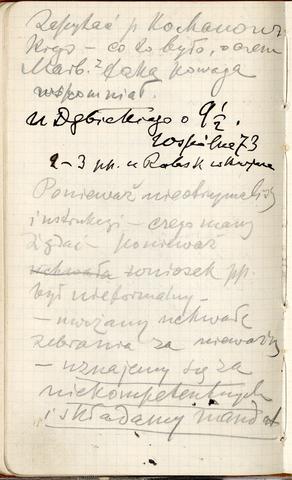 Zapytać p. Kochanow
skiego – co to było, o czem
Mark. z taką powagą
wspomniał.
u Dębickiego o 9 1/2.
Wspólna 73
2–3 pp. u
Ponieważ nie otrzymaliśmy
instrukcji – czego mamy
żądać – ponieważ
uchwała wniosek pp.
był nieformalny –
– uważamy uchwałę
zebrania za nieważną
– uznajemy się za
niekompetentnych
i składamy mandat